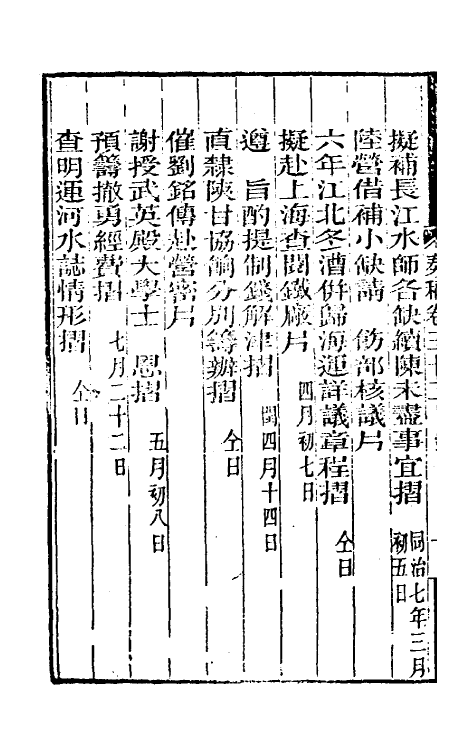 擬補長江水師各缺續陳未盡事宜摺 同治七年三月初五日
陸營借補小缺請 飭部核議片
六年江北冬漕併歸海運詳議章程摺 仝日
擬赴上海查閱鐵廠片 四月初七日
遵 旨酌提制錢解津摺 閏四月十四日
直隸陝甘協餉分別籌辦摺 仝日
催劉銘傳赴營密片
謝授武英殿大學士 恩摺 五月初八日
預籌撤勇經費摺 七月二十二日
查明運河水誌情形摺 仝日